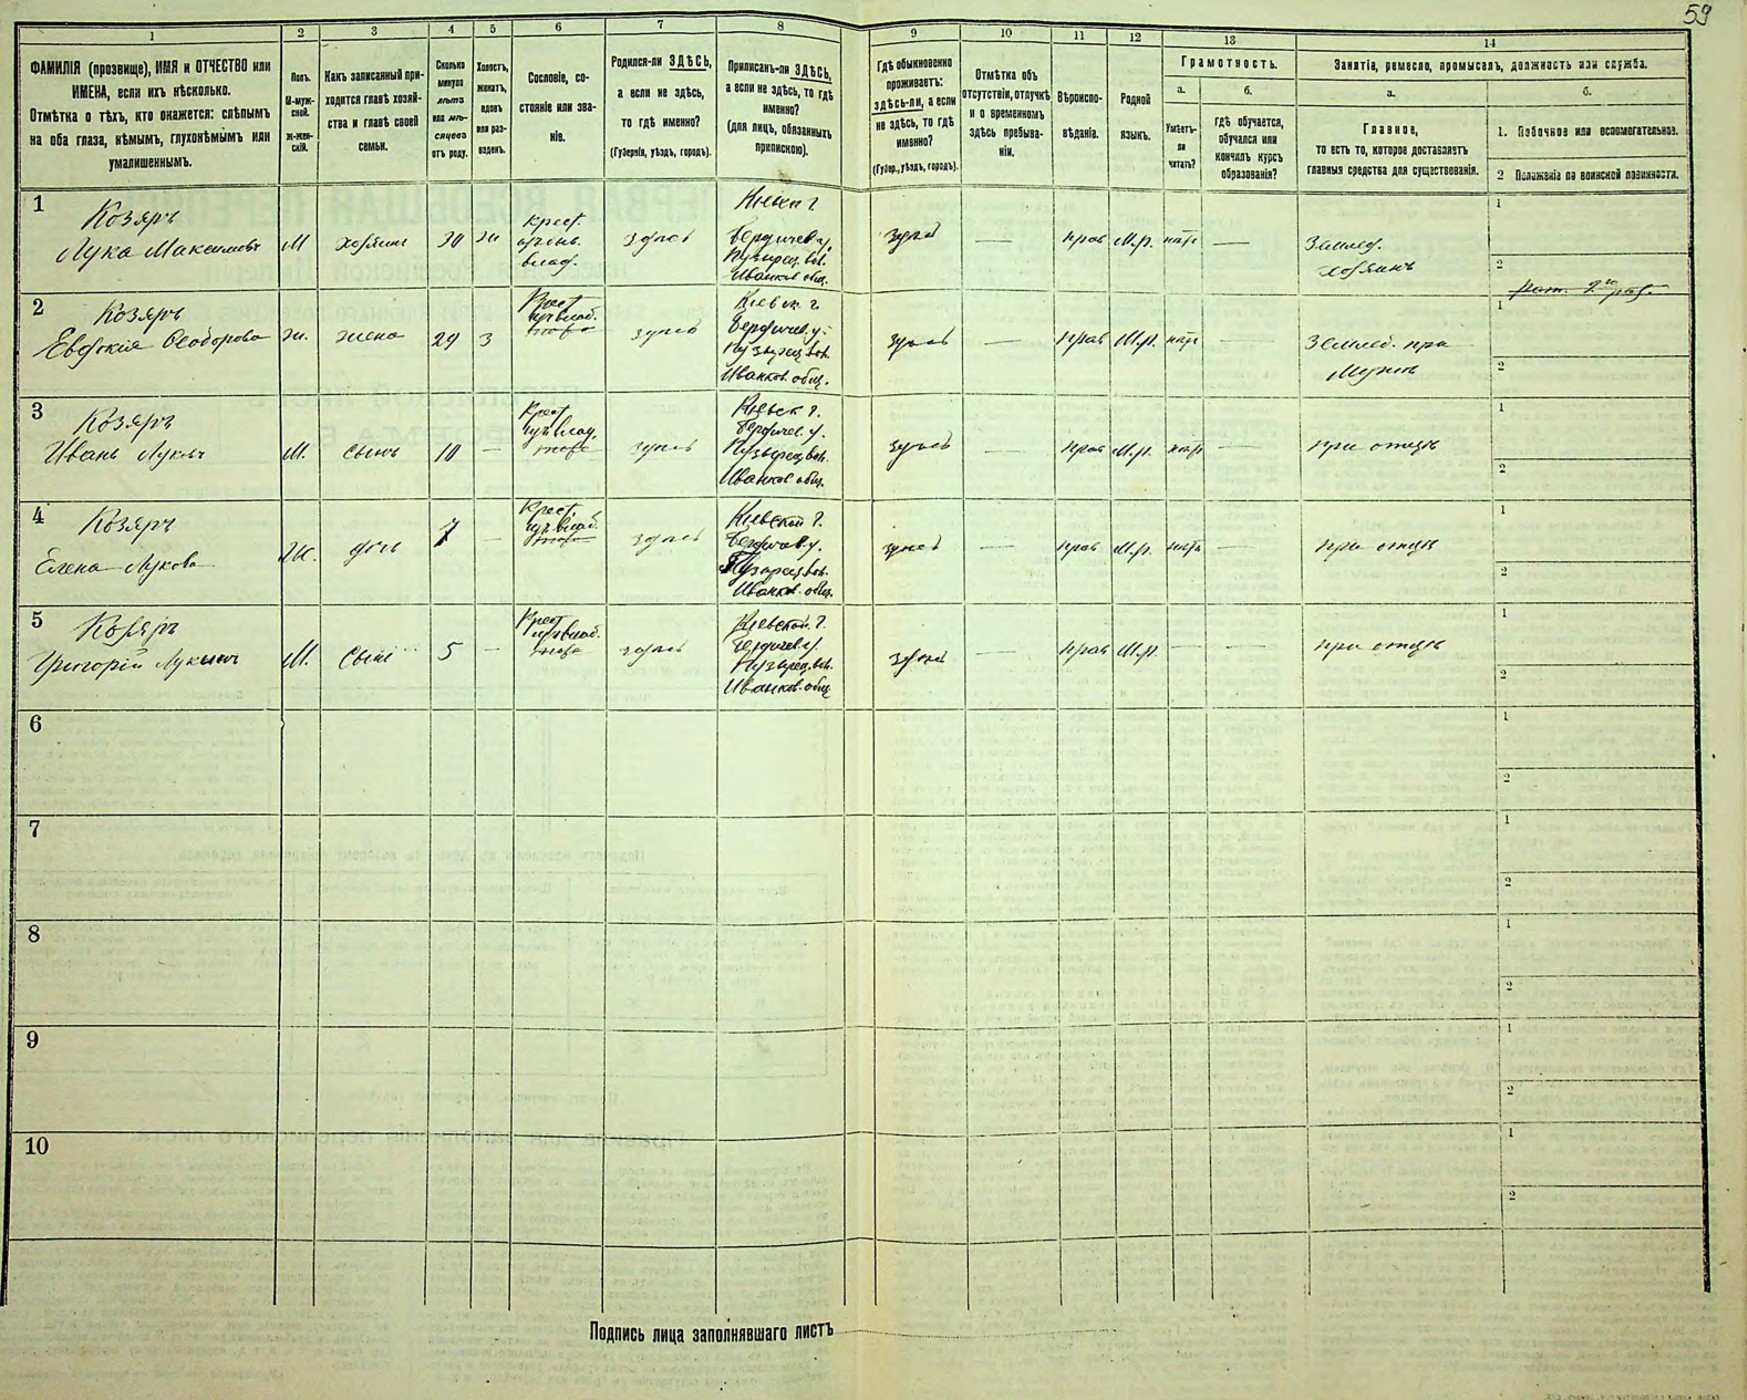 59
1 2 3 4 5 6 7 8 9 10 11 12 13 14
ФАМИЛІЯ (прозвище), ИМЯ и ОТЧЕСТВО или
ИМЕНА, если ихъ нѣсколько.
Отмѣтка о тѣхъ, кто окажется: слѣпымъ
на оба глаза, нѣмымъ, глухонѣмымъ или
умалишеннымъ.
Полъ.
М-муж-
ской.
ж-жен-
скій.
Какъ записанный при-
ходится главѣ хозяй-
ства и главѣ своей
семьи.
Сколько
минуло
лѣтъ
или мѣ-
сяцевъ
отъ роду.
Холостъ,
женатъ,
вдовъ
или раз-
веденъ.
Сословіе, со-
стояніе или зва-
ніе.
Родился-ли ЗДѢСЬ,
а если не здѣсь,
то гдѣ именно?
(Губернія, уѣздъ, городъ).
Приписанъ-ли ЗДѢСЬ,
а если не здѣсь, то гдѣ
именно?
(для лицъ, обязанныхъ
припискою).
Гдѣ обыкновенно
проживаетъ:
здѣсь-ли, а если
не здѣсь, то гдѣ
именно?
(Губер., уѣздъ, городъ).
Отмѣтка объ
отсутствіи, отлучкѣ
и о временномъ
здѣсь пребыва-
ніи.
Вѣроиспо-
вѣданіе.
Родной
языкъ.
Грамотность.
а. б.
Умѣетъ-
ли
читать?
гдѣ обучается,
обучался или
кончилъ курсъ
образованія?
Занятіе, ремесло, промыселъ, должность или служба.
а. б.
Главное,
то есть то, которое доставляетъ
главныя средства для существованія.
1. Побочное или вспомогательное.
2 Положеніе по воинской повинности.
1
Козяръ
Лука Максимовъ
М
хозяинъ
30
ж
Крест.
влад.
здѣсь
Кіевск г.
Бердичев у.
Пузырец. вол.
Иванков общ.
здѣсь
—
прав
М.р.
нѣтъ
—
Землед.
хозяинъ
1
2
2
Козяръ
Евдокія Ѳеодорова
ж.
жена
29
З
Крест
здѣсь
Кіевск. г
Бердичев. у.
Пузырец вол.
Иванков. общ.
здѣсь
—
прав
М.р.
нѣтъ
—
Землед. при
мужѣ
1
2
3
Козяръ
Иванъ Лукич
М.
сынъ
10
—
Крест
здѣсь
Кіевск г.
Бердичев. у.
Пузырец вол.
Иванков общ.
здѣсь
—
прав
М.р.
нѣтъ
—
при отцѣ
1
2
4
Козяръ
Елена Лукова
Ж.
дочь
7
—
Крест.
здѣсь
Кіевской г.
Бердичев. у.
Пузырец вол.
Иванков. общ.
здѣсь
—
прав
М.р.
нѣтъ
—
при отцѣ
1
2
5
Козяръ
Григорій Лукичъ
М.
сынъ
5
—
Крест
здѣсь
Кіевской. г.
Бердичев. у.
Пузырец. вол.
Иванков. общ
здѣсь
—
прав
М.р.
—
—
при отцѣ
1
2
6
1
2
7
1
2
8
1
2
9
1
2
10
1
2
Подпись лица заполнявшаго листъ